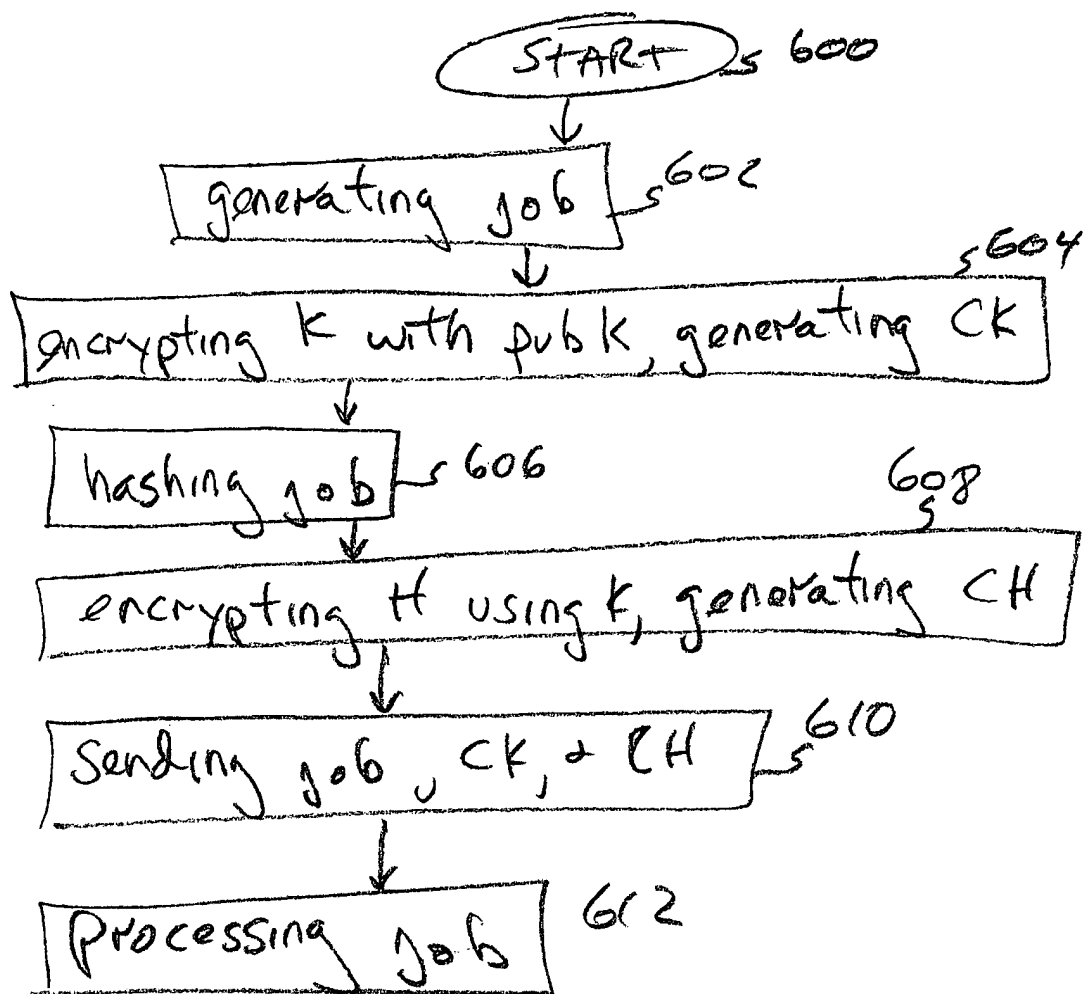 START 600
generating job 602
604
encrypting K with pubk, generating CK
hashing job 606
608
encrypting H using K, generating CH
sending job, CK, & CH 610
processing job 612